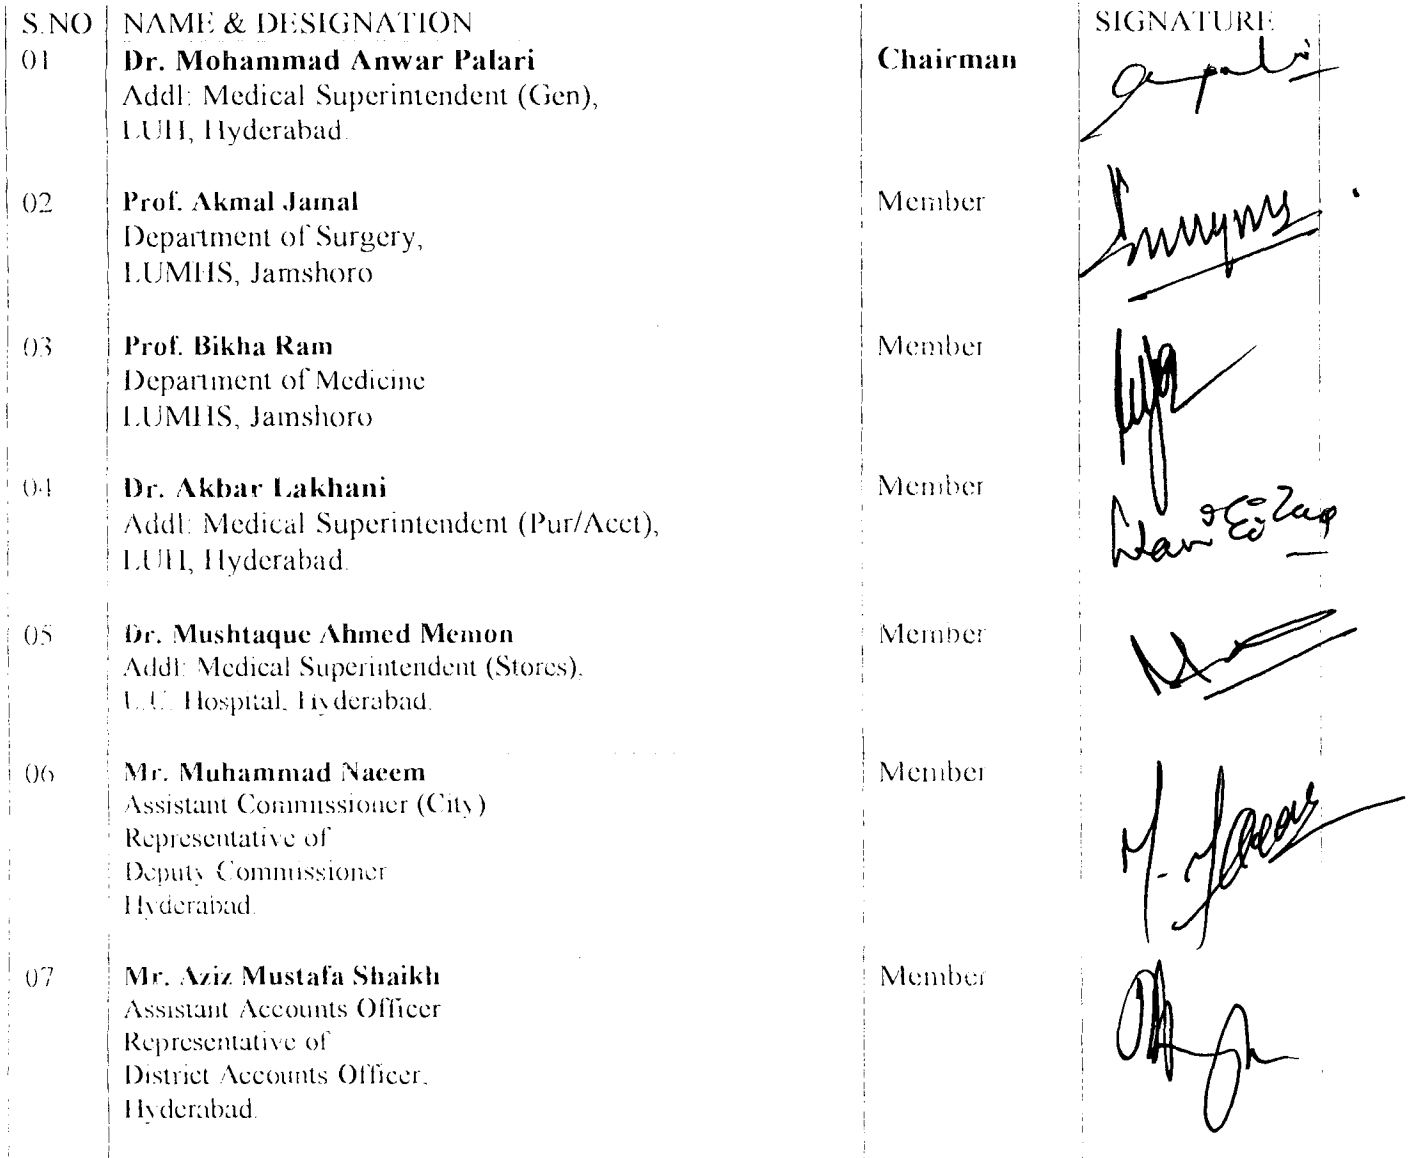 S.NO NAME & DESIGNATION SIGNATURE
01 Dr. Mohammad Anwar Palari Chairman
Addl: Medical Superintendent (Gen),
LUH, Hyderabad.
02 Prof. Akmal Jamal Member
Department of Surgery,
LUMHS, Jamshoro
03 Prof. Bikha Ram Member
Department of Medicine
LUMHS, Jamshoro
04 Dr. Akbar Lakhani Member
Addl: Medical Superintendent (Pur/Acct),
LUH, Hyderabad.
05 Dr. Mushtaque Ahmed Memon Member
Addl: Medical Superintendent (Stores),
L.U. Hospital, Hyderabad.
06 Mr. Muhammad Naeem Member
Assistant Commissioner (City)
Representative of
Deputy Commissioner
Hyderabad.
07 Mr. Aziz Mustafa Shaikh Member
Assistant Accounts Officer
Representative of
District Accounts Officer,
Hyderabad.